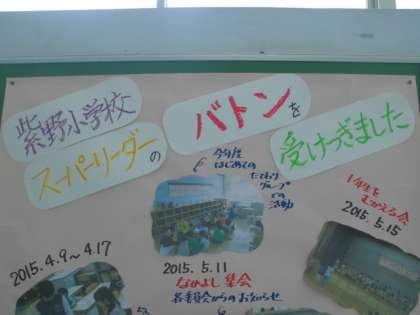 紫野小学校
スーパーリーダーの
バトンを
受けつぎました
今年度
はじめての
たてわり
グループ
での
活動
1年生を
むかえる会
2015.5.15
2015.4.9〜4.17
2015.5.11
なかよし集会
各委員会からのお知らせ